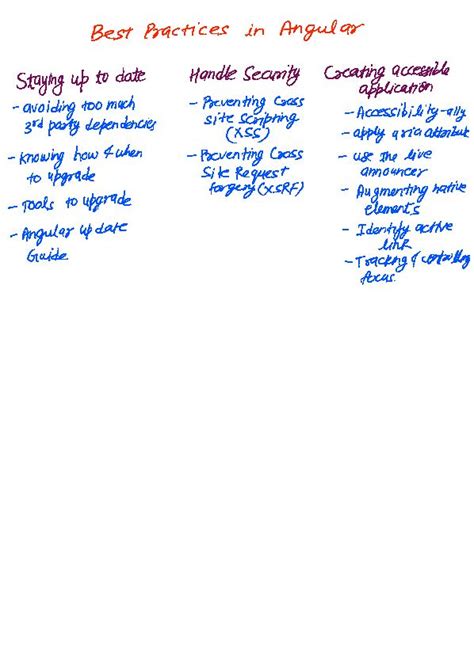 Best Practices in Angular
Staying up to date
- avoiding too much
3rd party dependencies
- Knowing how & when
to upgrade
- Tools to upgrade
- Angular update
Guide
Handle Security
- Preventing Cross
site scripting
(XSS)
- Preventing Cross
Site Request
forgery (XSRF)
Creating accessible
application
- Accessibility-a11y
- apply aria attribute
- use the live
announcer
- Augmenting native
elements
- Identify active
link
- Tracking & controlling
focus.